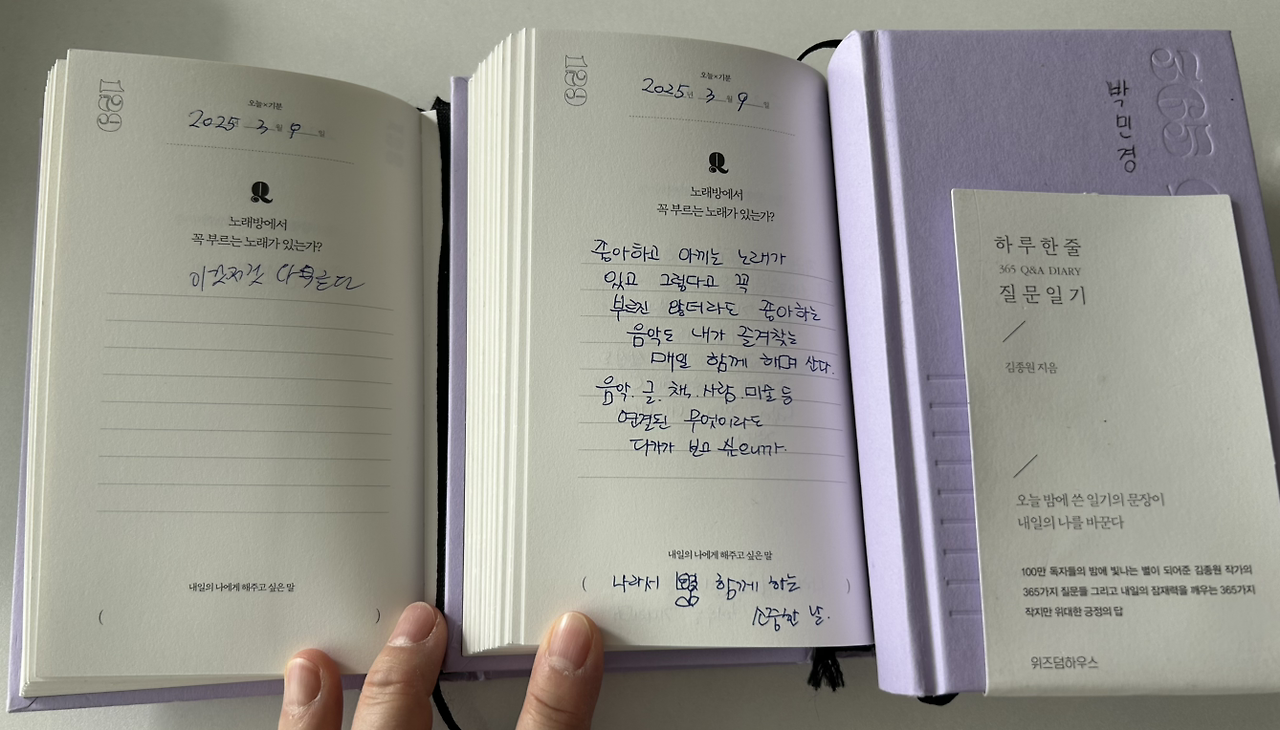 129
오늘×기분
2025 3월 9일
Q
노래방에서
꼭 부르는 노래가 있는가?
이것저것 다
내일의 나에게 해주고 싶은 말
( )
129
오늘×기분
2025년 3월 9일
Q
노래방에서
꼭 부르는 노래가 있는가?
좋아하고 아끼는 노래가
있고 그렇다고 꼭
부르진 않더라도 좋아하는
음악도 내가 즐겨찾는
매일 함께 하며 산다.
음악. 글. 책. 사람. 미술 등
연결된 무엇이라도
다가가 보고 싶으니까.
내일의 나에게 해주고 싶은 말
( 나라서 함께 하는 )
소중한 날.
365
박민경
하루 한 줄
365 Q&A DIARY
질문 일기
김종원 지음
오늘 밤에 쓴 일기의 문장이
내일의 나를 바꾼다
100만 독자들의 밤에 빛나는 별이 되어준 김종원 작가의
365가지 질문들 그리고 내일의 잠재력을 깨우는 365가지
작지만 위대한 긍정의 답
위즈덤하우스